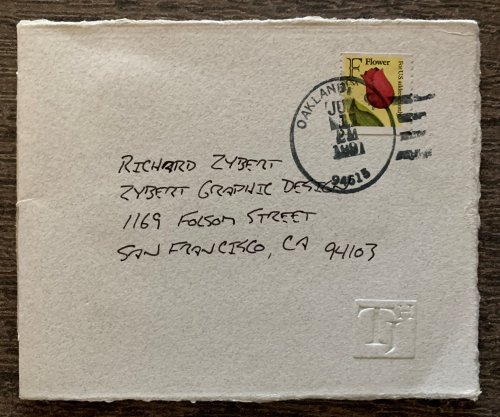 F Flower
For US addresses only
OAKLAND, CA
JUL
1991
94615
RICHARD ZYBERT
ZYBERT GRAPHIC DESIGN
1169 FOLSOM STREET
SAN FRANCISCO, CA 94103
TJH